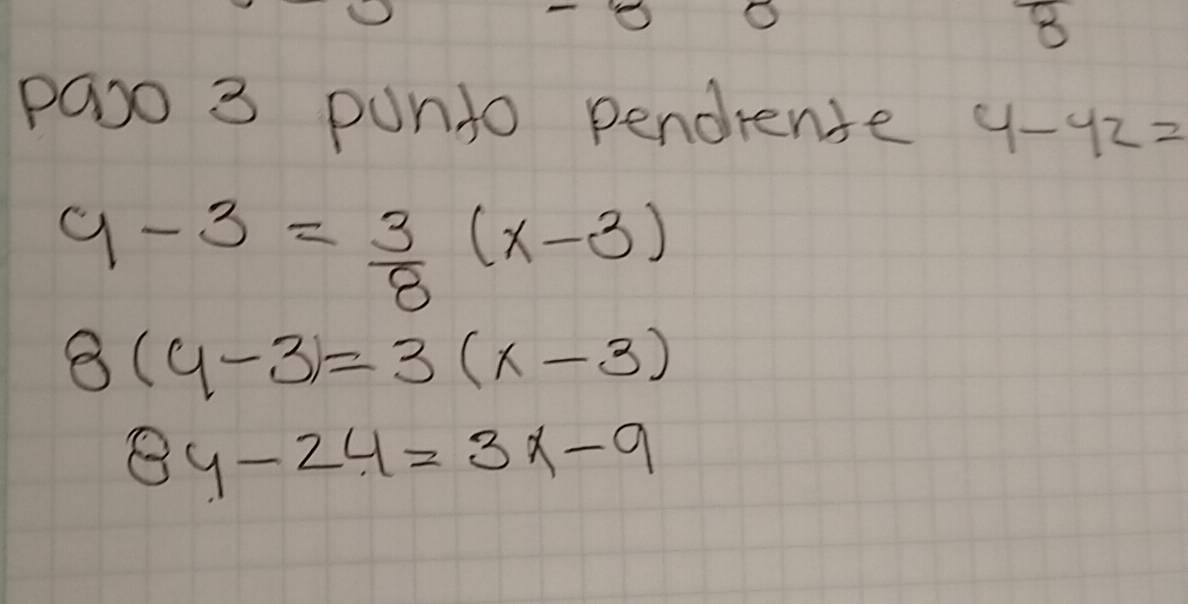 paso 3 punto pendiente y-y2=
y-3 = 3/8 (x-3)
8(y-3)=3(x-3)
8y-24=3x-9